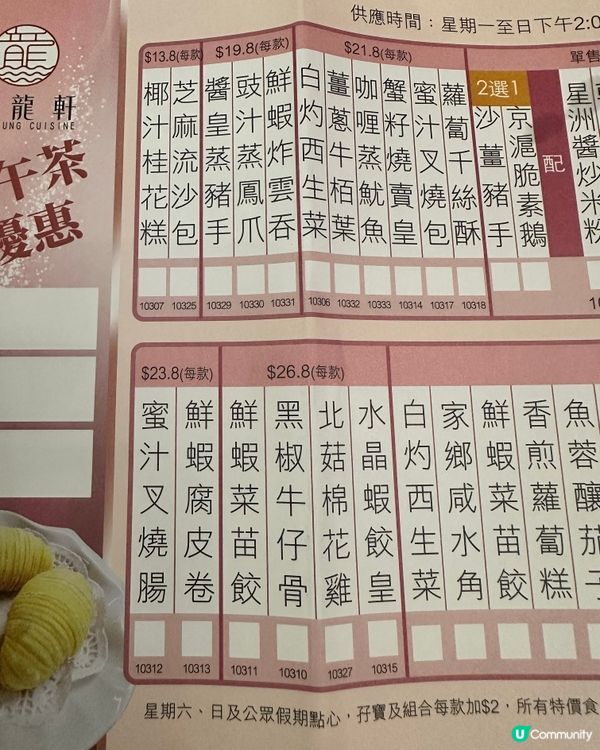 供應時間：星期一至日下午2:0
龍
龍軒
UNG CUISINE
午茶
優惠
$13.8(每款)
$19.8(每款)
$21.8(每款)
單售
椰汁桂花糕
芝麻流沙包
醬皇蒸豬手
豉汁蒸鳳爪
鮮蝦炸雲吞
白灼西生菜
薑蔥牛栢葉
咖喱蒸魷魚
蟹籽燒賣皇
蜜汁叉燒包
蘿蔔千絲酥
2選1
沙薑豬手
京滬脆素鵝
配
星洲醬炒米粉
10307
10325
10329
10330
10331
10306
10332
10333
10314
10317
10318
$23.8(每款)
$26.8(每款)
蜜汁叉燒腸
鮮蝦腐皮卷
鮮蝦菜苗餃
黑椒牛仔骨
北菇棉花雞
水晶蝦餃皇
白灼西生菜
家鄉咸水角
鮮蝦菜苗餃
香煎蘿蔔糕
魚蓉釀茄子
10312
10313
10311
10310
10327
10315
星期六、日及公眾假期點心，孖寶及組合每款加$2，所有特價食
U Community